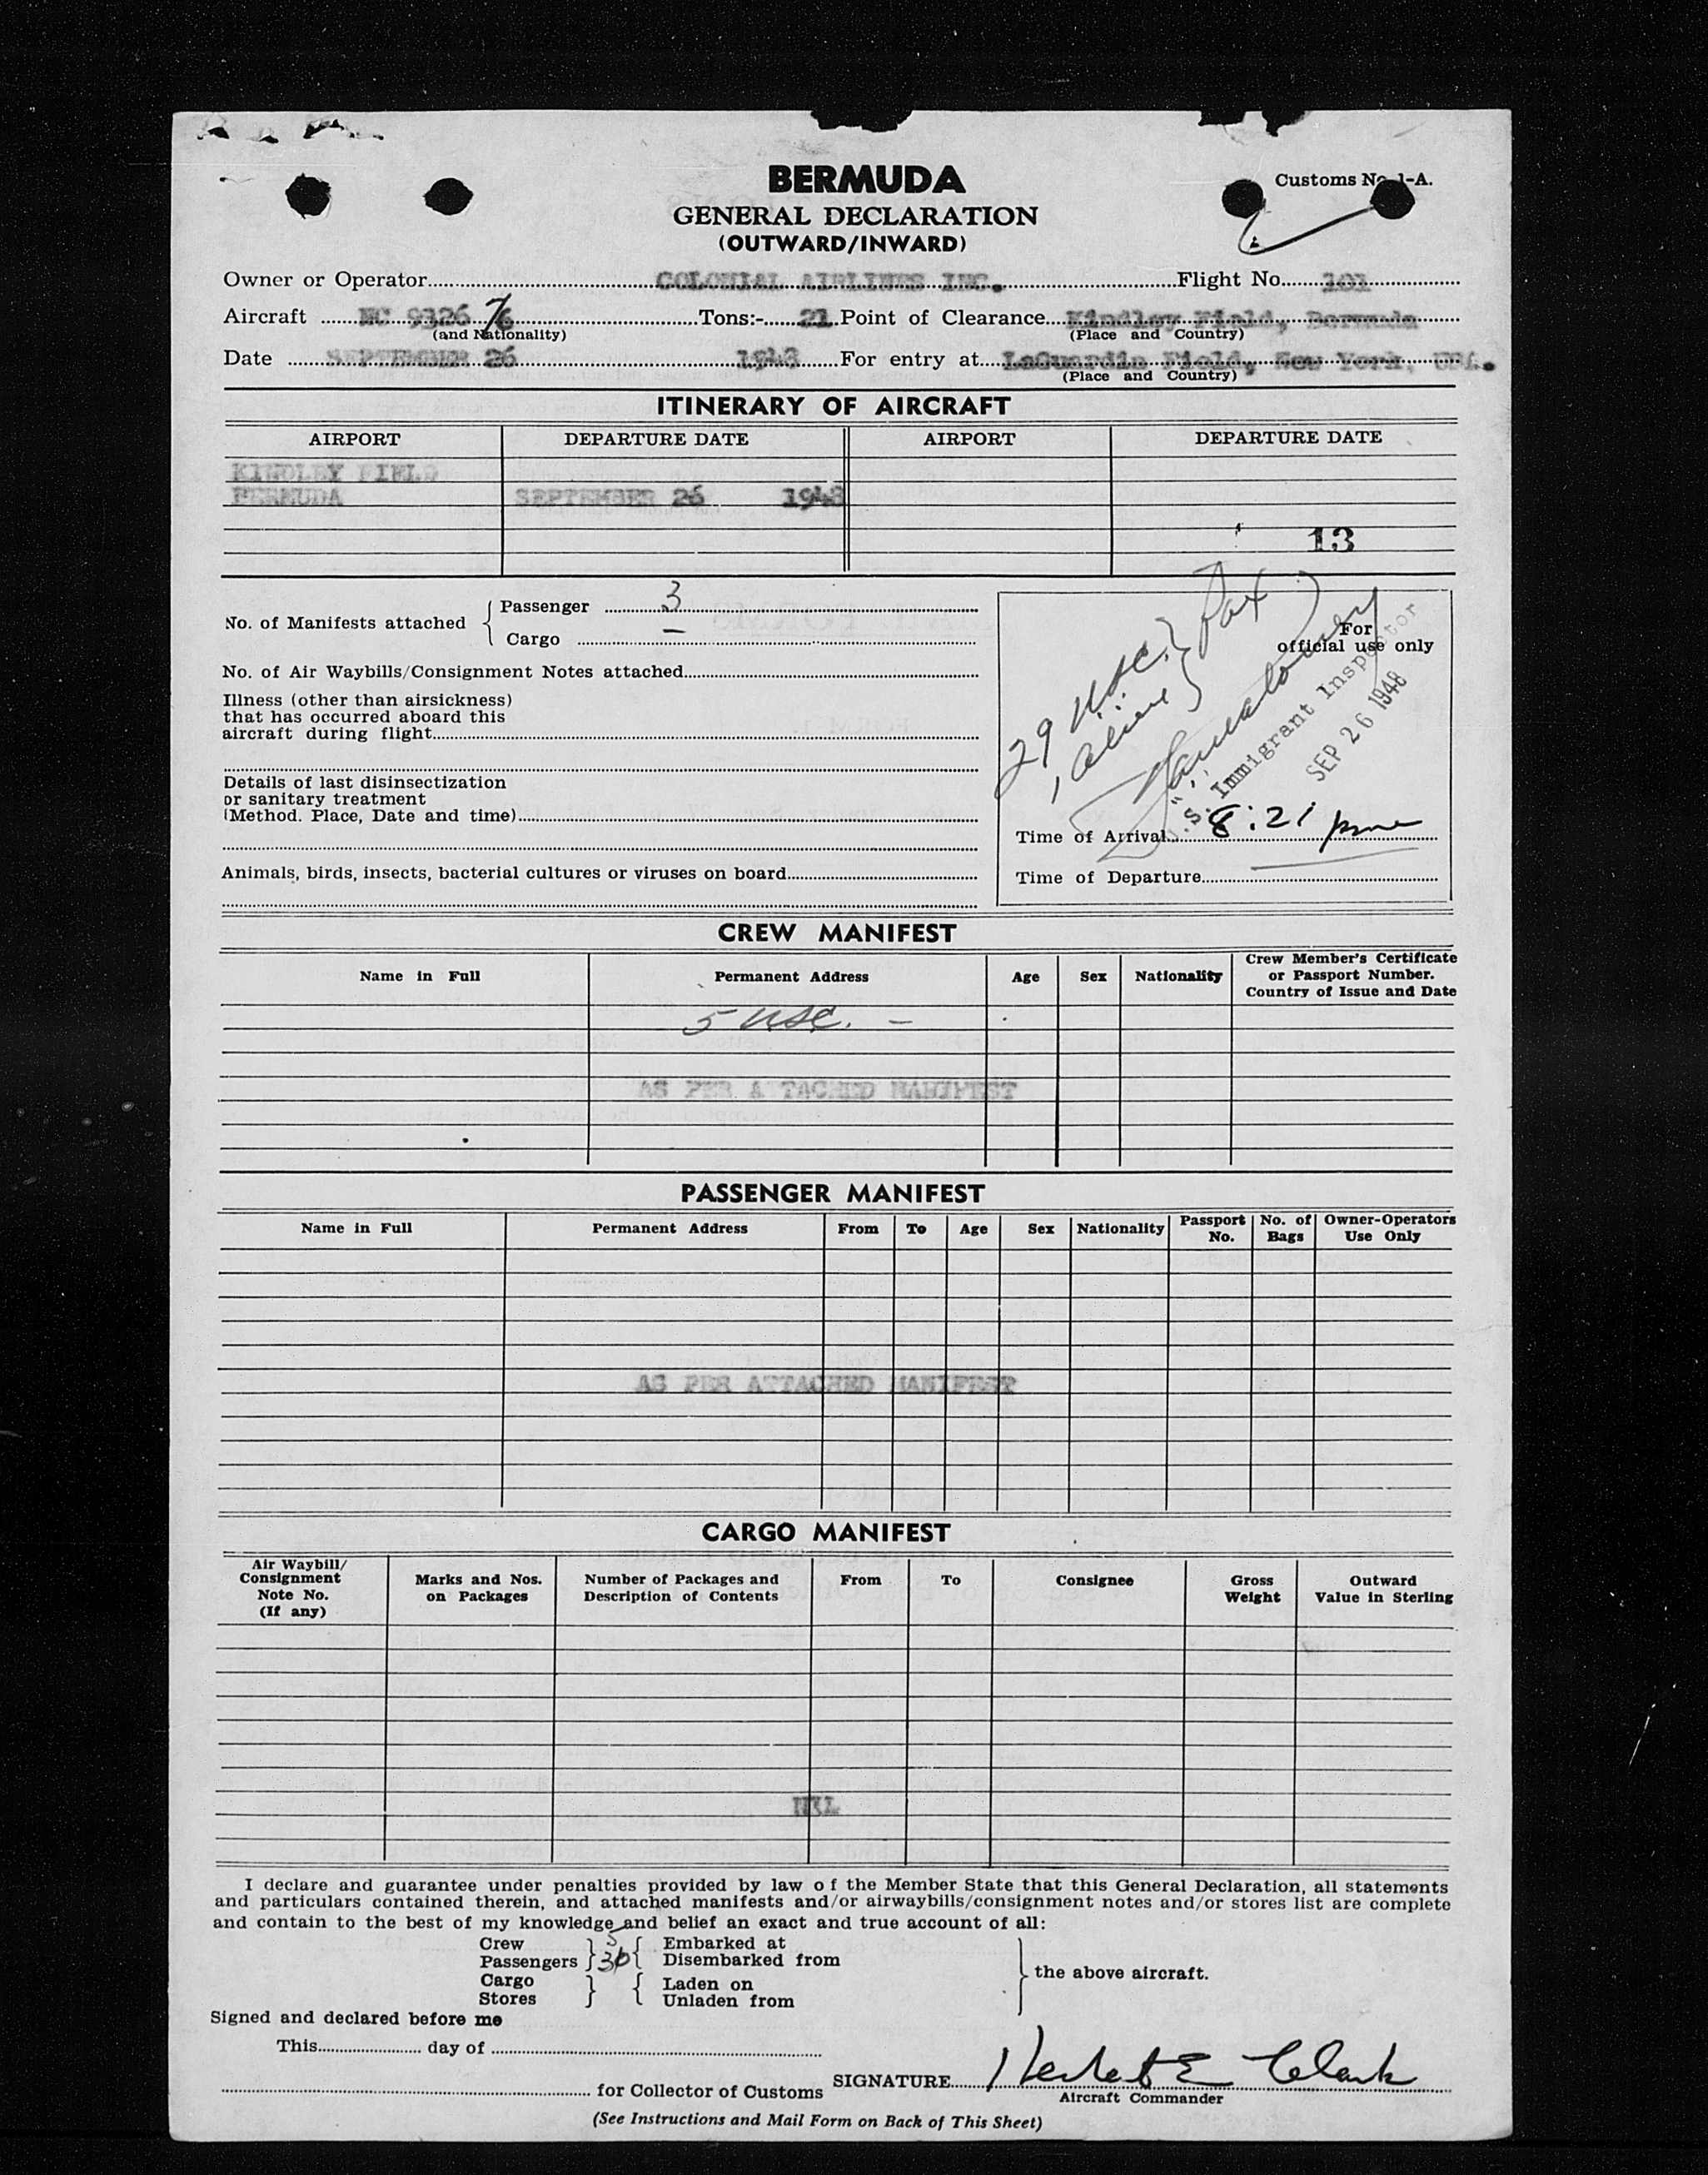 BERMUDA
Customs No. 1-A.
GENERAL DECLARATION
(OUTWARD/INWARD)
Owner or Operator COLONIAL AIRLINES INC. Flight No. 101
Aircraft NC 9326 7/6 Tons:- 21 Point of Clearance Kindley Field, Bermuda
(and Nationality) (Place and Country)
Date SEPTEMBER 26 1948 For entry at LaGuardia Field, New York, USA.
(Place and Country)
ITINERARY OF AIRCRAFT
AIRPORT DEPARTURE DATE AIRPORT DEPARTURE DATE
KINDLEY FIELD
BERMUDA SEPTEMBER 26 1948
13
No. of Manifests attached { Passenger 3
Cargo —
No. of Air Waybills/Consignment Notes attached
Illness (other than airsickness)
that has occurred aboard this
aircraft during flight
Details of last disinsectization
or sanitary treatment
(Method. Place, Date and time)
Animals, birds, insects, bacterial cultures or viruses on board
For
official use only
29 USC. } Pax
1 alien
U.S. Immigrant Inspector
SEP 26 1948
Time of Arrival 8:21 pm
Time of Departure
CREW MANIFEST
Name in Full Permanent Address Age Sex Nationality Crew Member's Certificate
or Passport Number.
Country of Issue and Date
5 USC. —
AS PER A TACHED MANIFEST
PASSENGER MANIFEST
Name in Full Permanent Address From To Age Sex Nationality Passport No. No. of Bags Owner-Operators Use Only
AS PER ATTACHED MANIFEST
CARGO MANIFEST
Air Waybill/
Consignment
Note No.
(If any)
Marks and Nos.
on Packages
Number of Packages and
Description of Contents
From To Consignee
Gross
Weight
Outward
Value in Sterling
NIL
I declare and guarantee under penalties provided by law of the Member State that this General Declaration, all statements
and particulars contained therein, and attached manifests and/or airwaybills/consignment notes and/or stores list are complete
and contain to the best of my knowledge and belief an exact and true account of all:
Crew } 5 { Embarked at
Passengers } 30 { Disembarked from
the above aircraft.
Cargo } { Laden on
Stores } { Unladen from
Signed and declared before me
This day of
for Collector of Customs
SIGNATURE Herbert E Clark
Aircraft Commander
(See Instructions and Mail Form on Back of This Sheet)